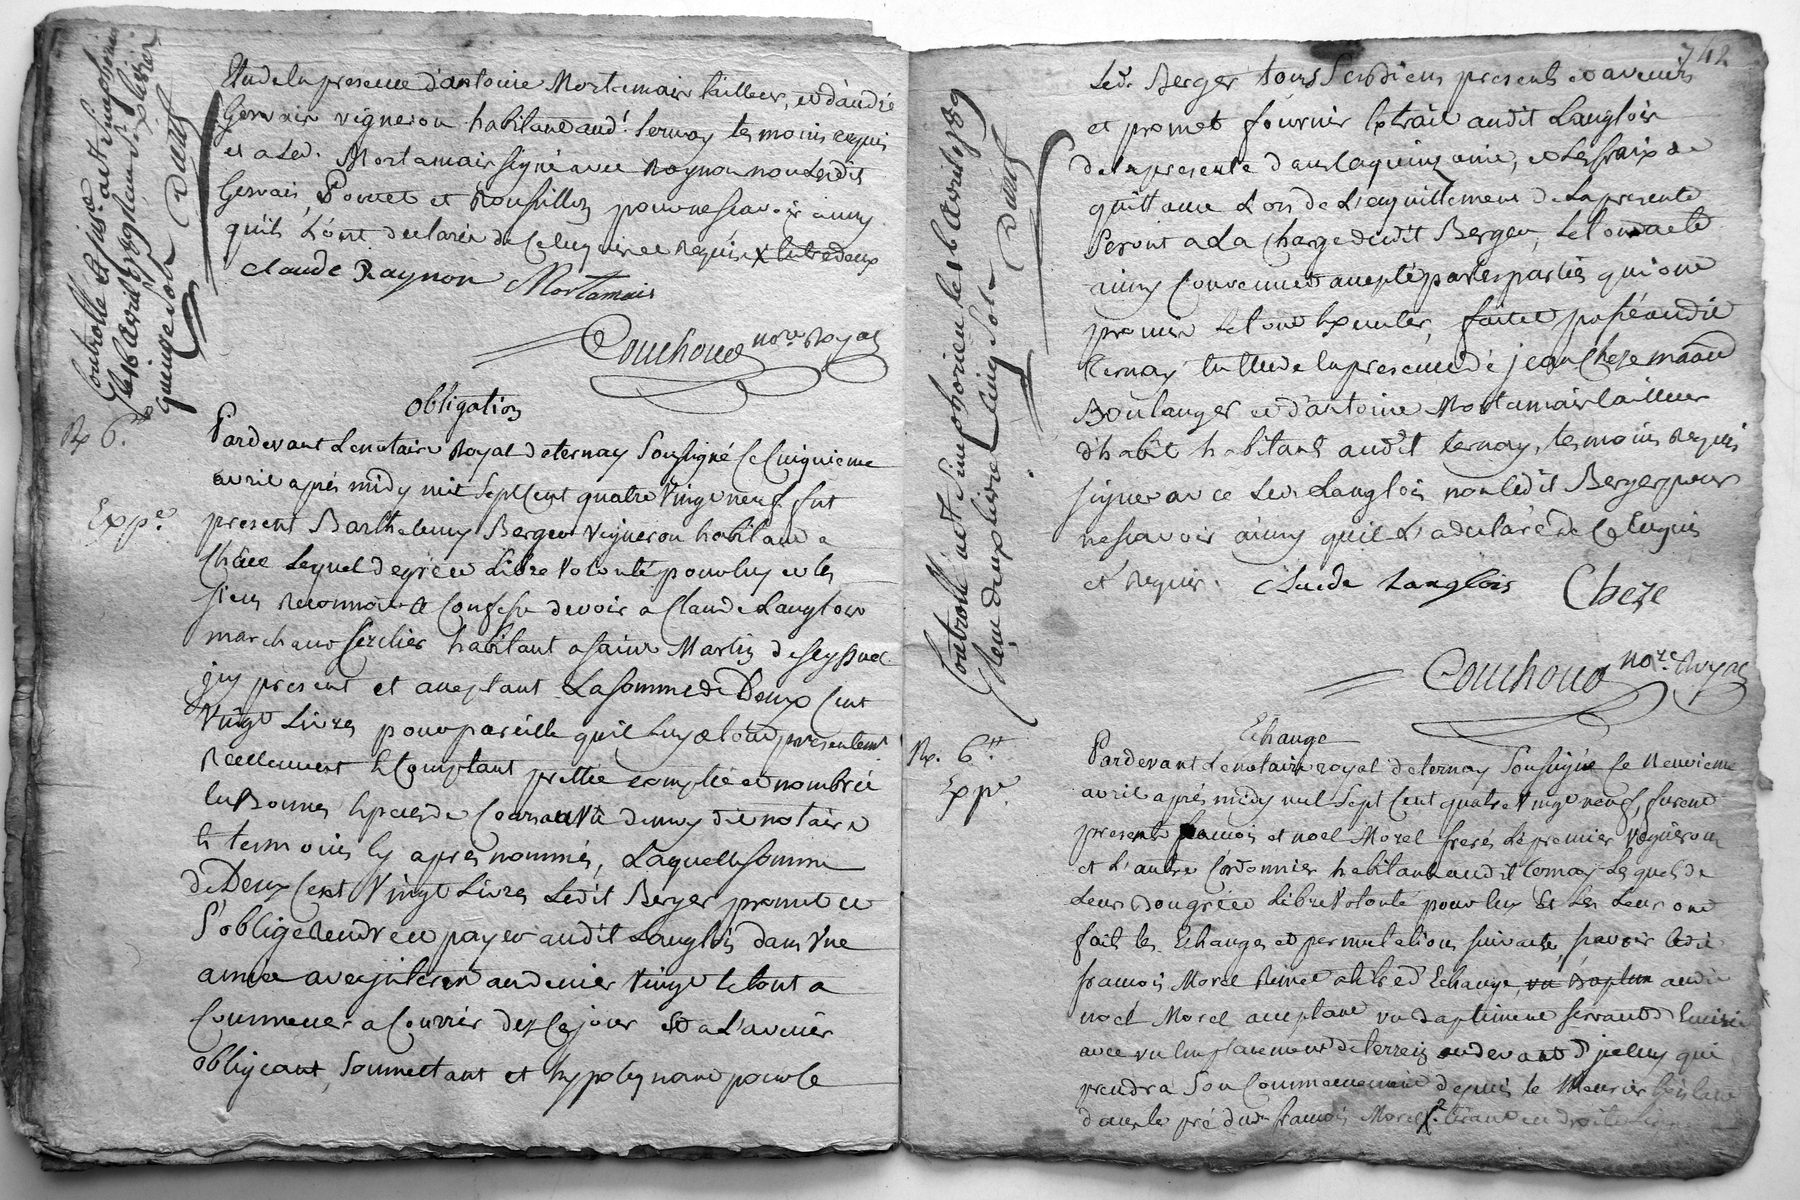 Et de la presence d'antoine Mortamais tailleur, et d'andré
Gervais vigneron habitant aud.t Ternay temoins requis
et a Led. Mortamais signé avec Raynon non Lesdits
Gervais, Pornet et Roussillon pour ne scavoir ainsy
qu'ils L'ont declaré de ce enquis et Requis
Claude Raynon Mortamais
Couchoud no.re Royal
Controllé et
le 16 avril 1789
quinze sols
Obligation
Rx 6.tt
Exp.e
Pardevant Le notaire Royal de ternay Soussigné Le Cinquieme
avril après midy mil Sept Cent quatre Vingt neuf, fut
present Barthelemy Berger Vigneron habitant a
Lequel de gré et Libre Volonté pour luy et les
siens Reconnoit et Confesse devoir a Claude Langlois
marchand habitant a saint Martin de seyssuel
jcy present et acceptant La somme de Deux Cent
Vingt Livres pour pareille qu'il luy a tout presentement
Réellement et Comptant prettée comptée et nombrée
en Bonnes Especes de Cours au Vû de moy dit notaire
et temoins Cy apres nommés, Laquelle somme
de Deux Cent Vingt Livres Ledit Berger promet et
S'oblige Rendre et payer audit Langlois dans Une
année avec jnterest au denier Vingt Le tout a
Commencer a Courrir dez Ce jour et a L'avenir
obligeant, Soumettant et hypotequant pour Ce
742
Led. Berger tous Ses Biens presents et avenirs
et promet fournir Extrait audit Langlois
de la presente dans La quinzaine, et Les fraix de
quittance Lors de L'aquittement de La presente
Seront a La Charge dudit Berger, Le tout acte
ainsy Convenu et accepté par les parties qui ont
promis Le tout Executer, fait et passé audit
Ternay En Et de la presence de jean Cheze maitre
Boulanger et d'antoine Mortamais tailleur
d'habit habitants audit ternay, temoins Requis
signé avec Led. Langlois non Ledit Berger pour
ne scavoir ainsy qu'il L'a declaré de Ce Enquis
et Requis. Claude Langlois Cheze
Couchoud no.re Royal
Controllé a St Simphorien le 16 avril 1789
Reçu deux livres Cinq Sols
Echange
Rx. 6.tt
Exp.e
Pardevant Le notaire royal de ternay Soussigné Le Neuvieme
avril après midy mil Sept Cent quatre Vingt neuf, furent
presents francois et noel Morel freres Le premier Vigneron
et L'autre Cordonnier habitants audit ternay Lesquels de
Leurs Bon gré et Libre Volonté pour Eux Et Les Leurs ont
fait les Echanges et permutations suivants, scavoir Ledit
francois Morel Remet a titre d'Echange, audit
noel Morel acceptant un Baptiment servant d'Ecurie
avec un Emplacement de terrein au devant d'jceluy qui
prendra Son Commencement depuis le Meurier
dans le pré dud. francois Morel